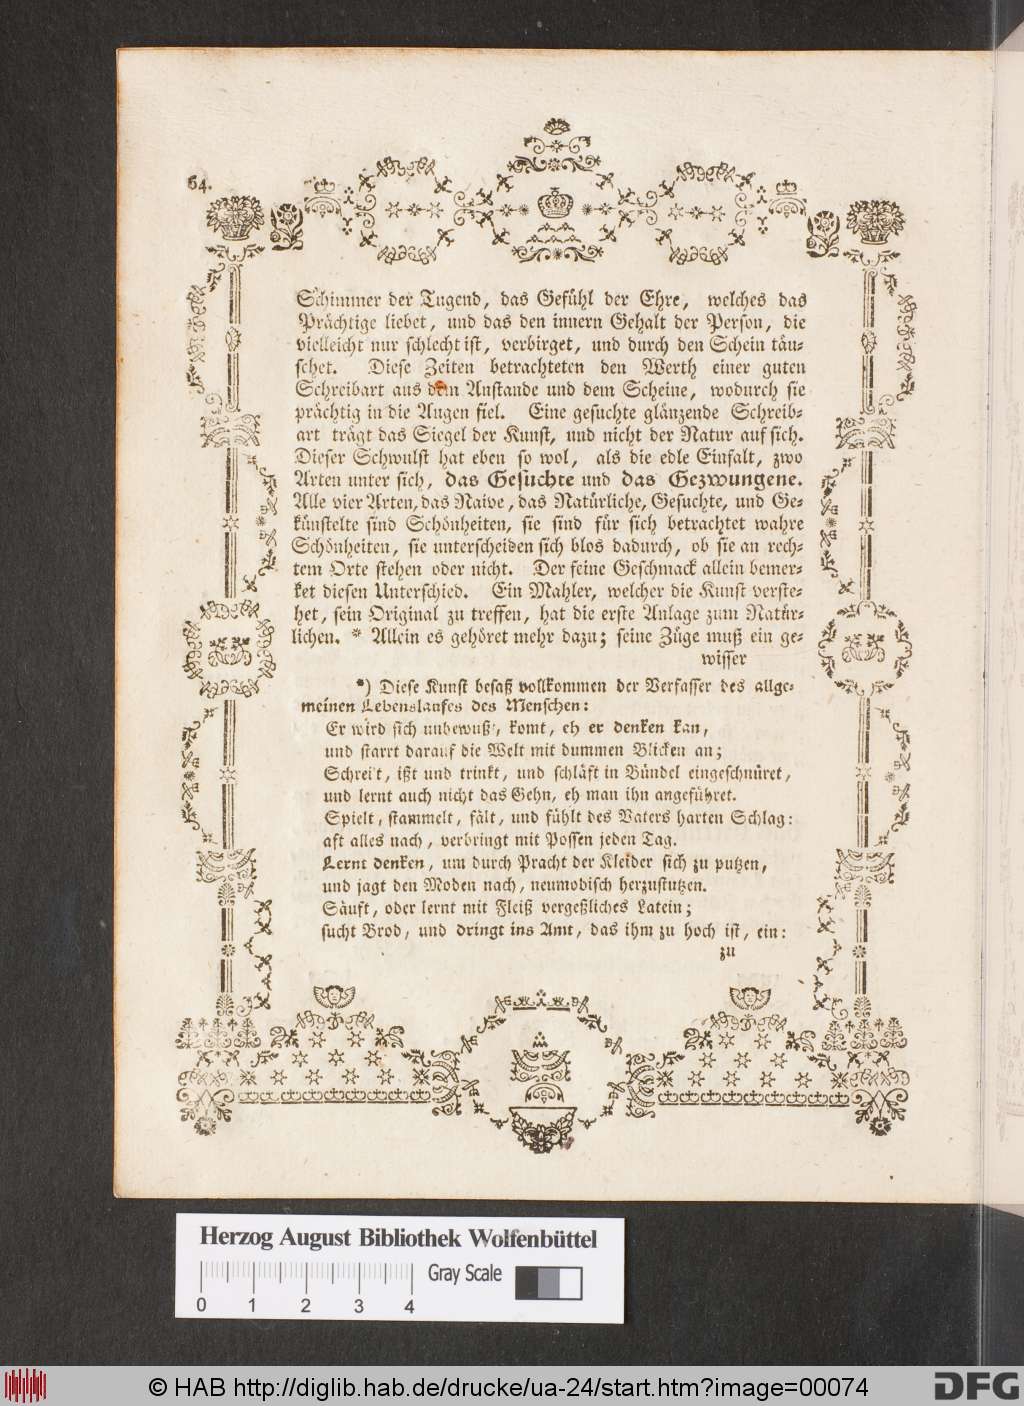 64.
Schimmer der Tugend, das Gefühl der Ehre, welches das
Prächtige liebet, und das den innern Gehalt der Person, die
vielleicht nur schlecht ist, verbirget, und durch den Schein täu-
schet. Diese Zeiten betrachteten den Werth einer guten
Schreibart aus dem Anstande und dem Scheine, wodurch sie
prächtig in die Augen fiel. Eine gesuchte glänzende Schreib-
art trägt das Siegel der Kunst, und nicht der Natur auf sich.
Dieser Schwulst hat eben so wol, als die edle Einfalt, zwo
Arten unter sich, das Gesuchte und das Gezwungene.
Alle vier Arten, das Naive, das Natürliche, Gesuchte, und Ge-
künstelte sind Schönheiten, sie sind für sich betrachtet wahre
Schönheiten, sie unterscheiden sich blos dadurch, ob sie an rech-
tem Orte stehen oder nicht. Der feine Geschmack allein bemer-
ket diesen Unterschied. Ein Mahler, welcher die Kunst verste-
het, sein Original zu treffen, hat die erste Anlage zum Natür-
lichen. * Allein es gehöret mehr dazu; seine Züge muß ein ge-
wisser
*) Diese Kunst besaß vollkommen der Verfasser des allge-
meinen Lebenslaufes des Menschen:
Er wird sich unbewußt, komt, eh er denken kan,
und starrt darauf die Welt mit dummen Blicken an;
Schreit, ißt und trinkt, und schläft in Bündel eingeschnüret,
und lernt auch nicht das Gehn, eh man ihn angeführet.
Spielt, stammelt, fält, und fühlt des Vaters harten Schlag:
aft alles nach, verbringt mit Possen jeden Tag.
Lernt denken, um durch Pracht der Kleider sich zu putzen,
und jagt den Moden nach, neumodisch herzustutzen.
Säuft, oder lernt mit Fleiß vergeßliches Latein;
sucht Brod, und dringt ins Amt, das ihm zu hoch ist, ein:
zu
Herzog August Bibliothek Wolfenbüttel
Gray Scale
0 1 2 3 4
© HAB http://diglib.hab.de/drucke/ua-24/start.htm?image=00074
DFG